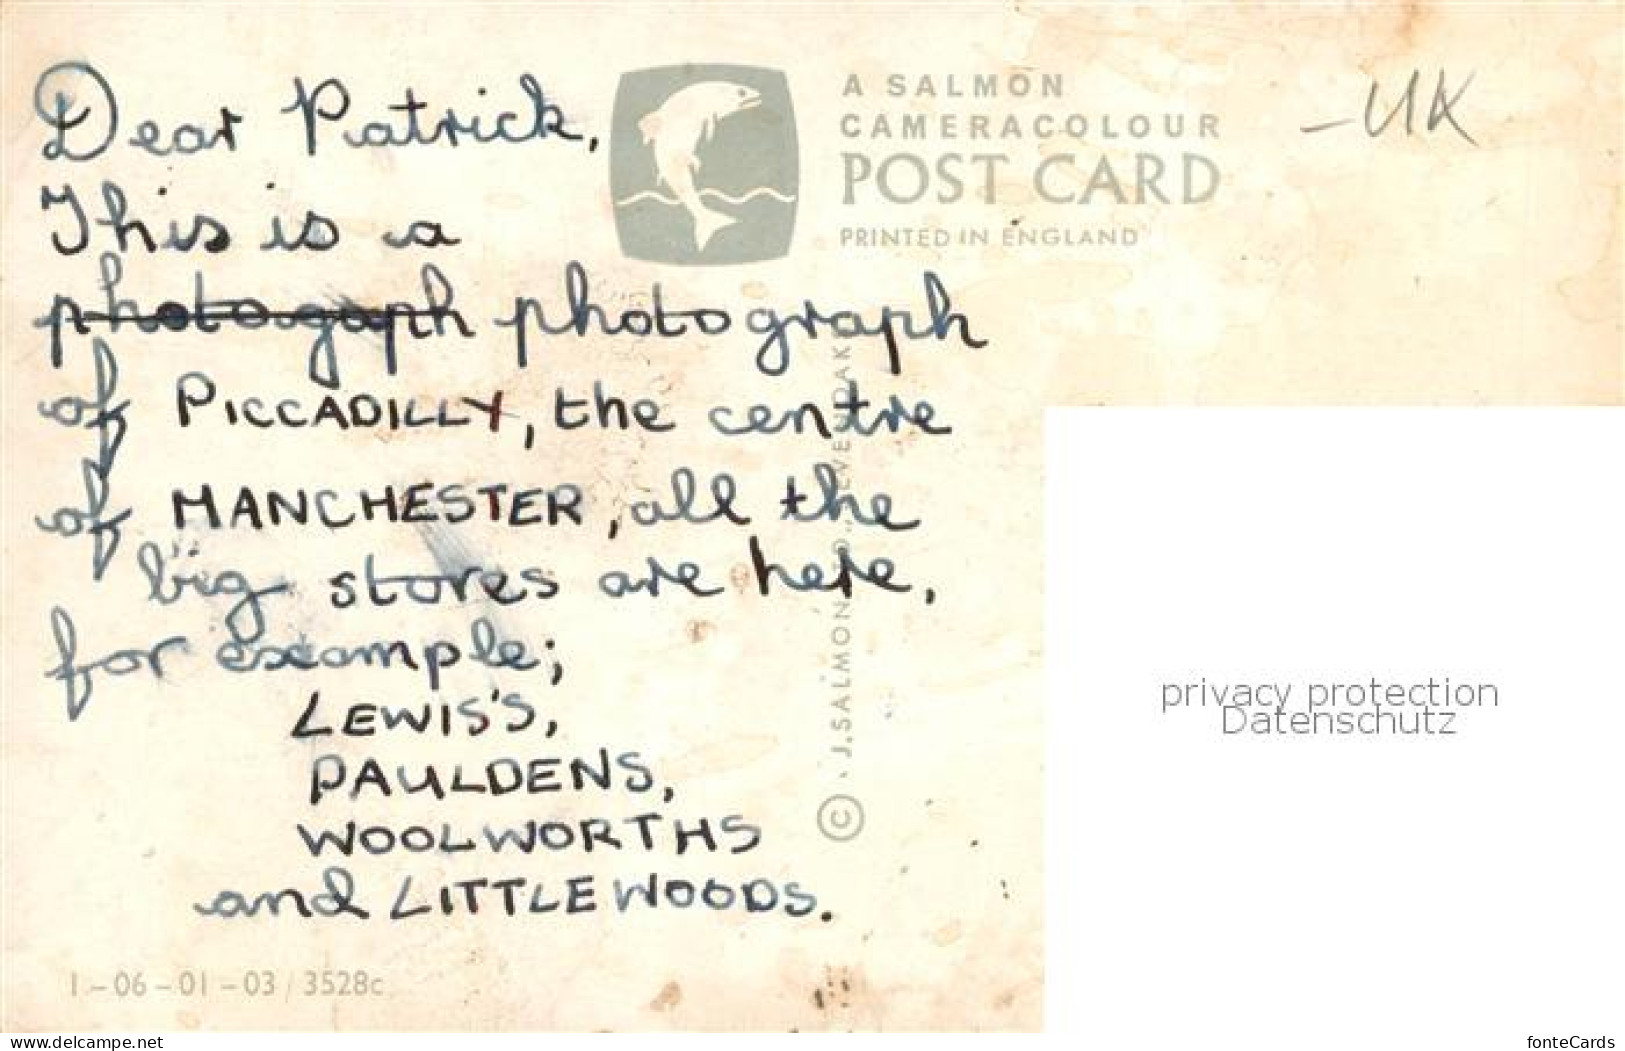 Dear Patrick,
This is a
photogaph photograph
of PICCADILLY, the centre
of MANCHESTER, all the
big stores are here,
for example;
LEWIS'S,
PAULDENS,
WOOLWORTHS
and LITTLEWOODS.
1-06-01-03/3528c
A SALMON
CAMERACOLOUR
POST CARD
PRINTED IN ENGLAND
- UK
© J. SALMON
privacy protection
Datenschutz
www.delcampe.net
fonteCards